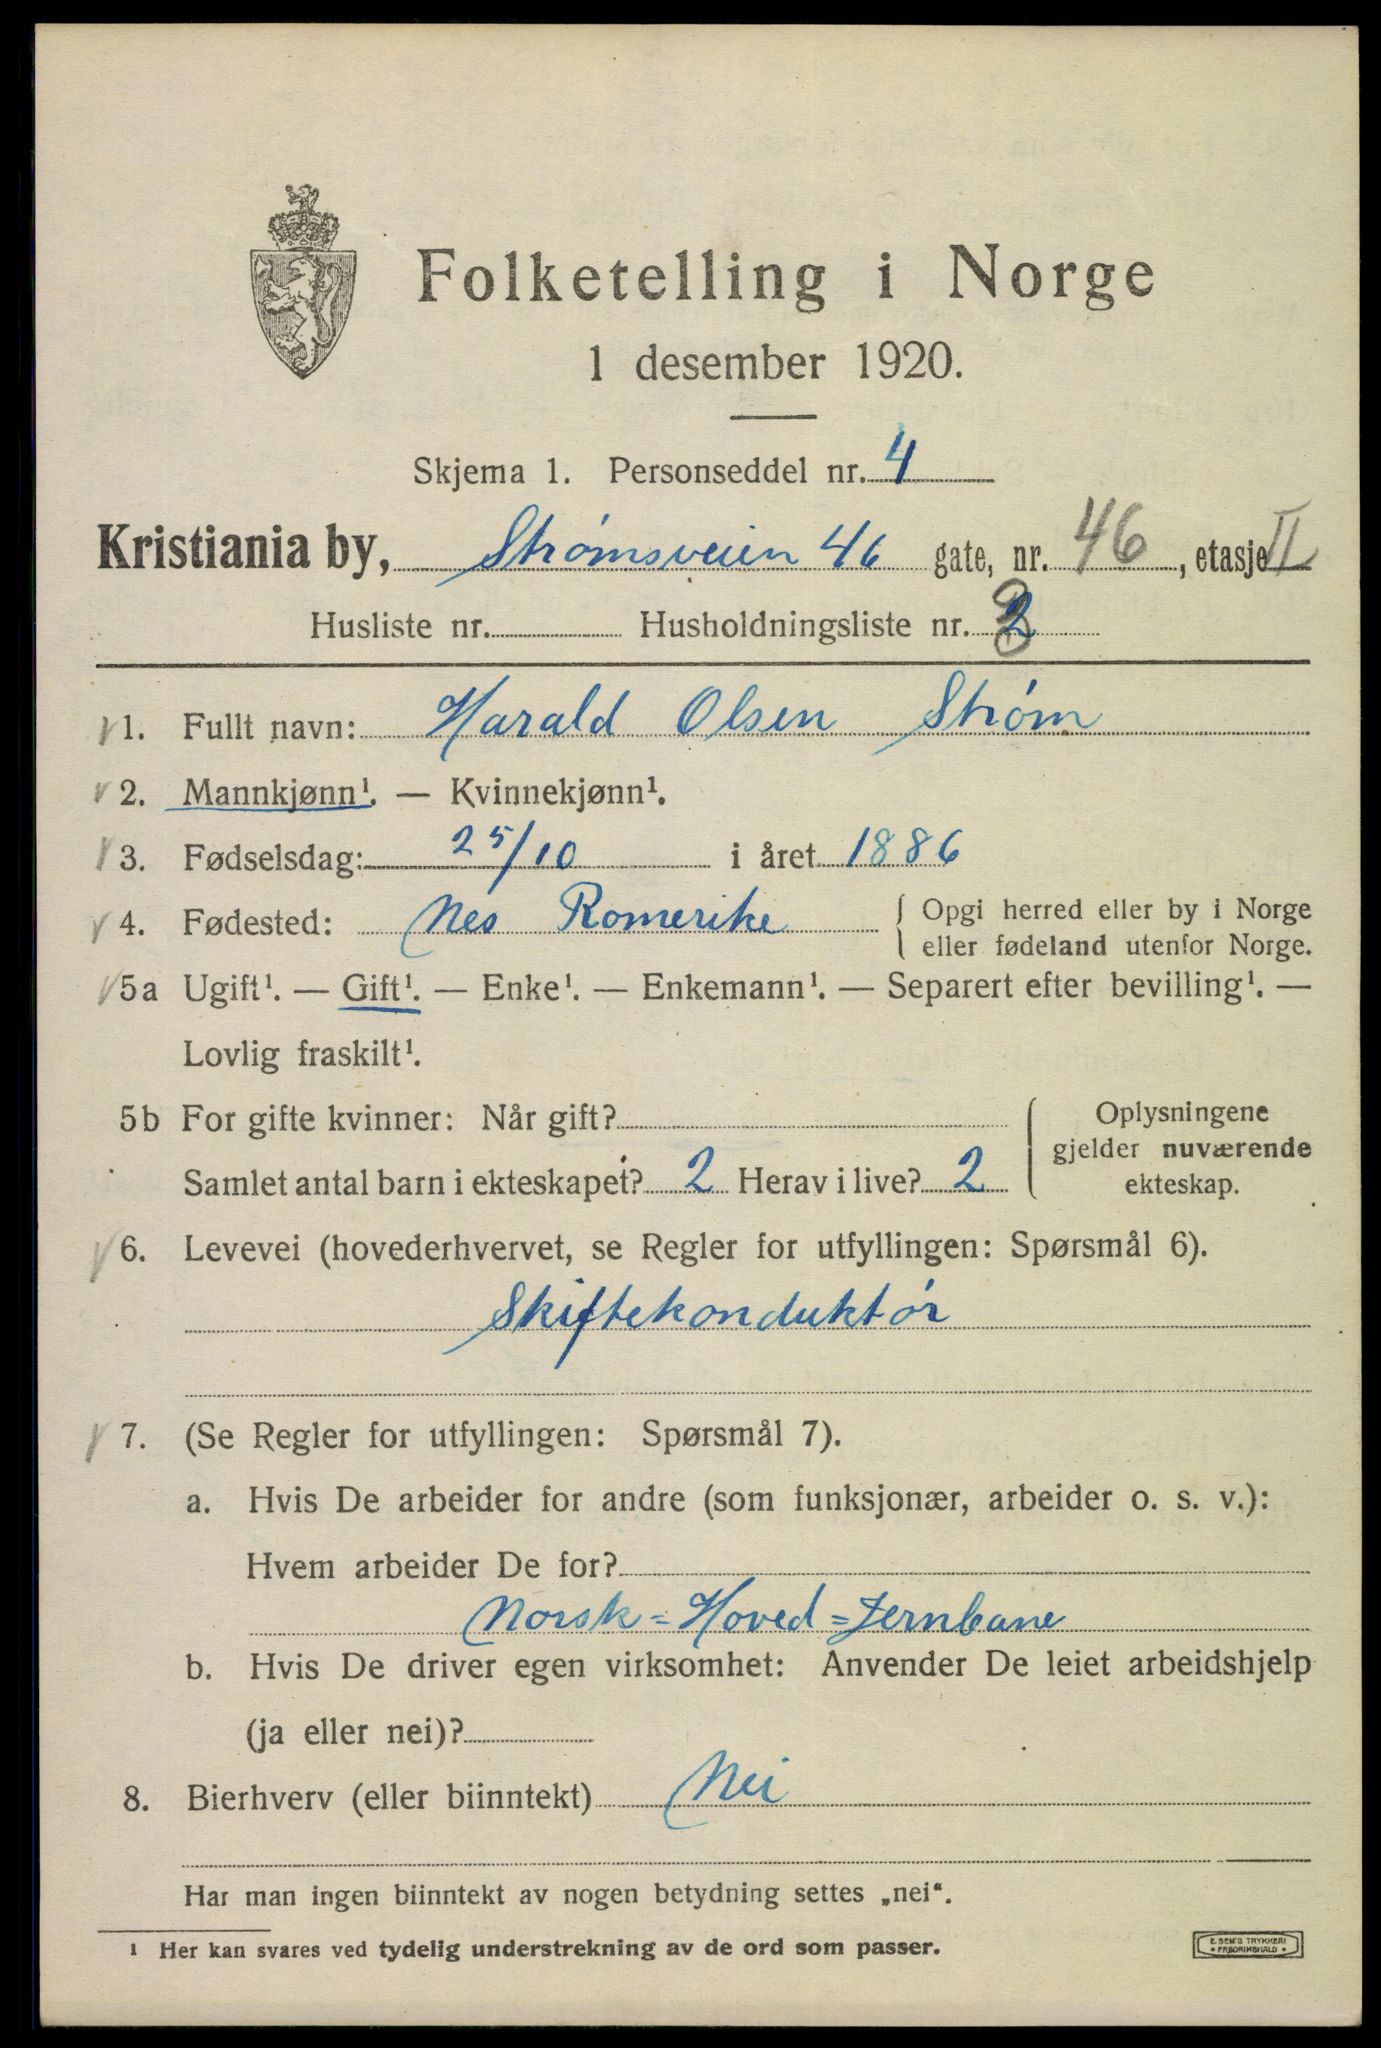 Folketelling i Norge
1 desember 1920.
Skjema 1. Personseddel nr. 4
Kristiania by, Strømsveien 46 gate, nr. 46, etasje II
Husliste nr. Husholdningsliste nr. 2
1. Fullt navn: Harald Olsen Strøm
2. Mannkjønn¹. — Kvinnekjønn¹.
3. Fødselsdag: 25/10 i året 1886
4. Fødested: Nes Romerike { Opgi herred eller by i Norge
eller fødeland utenfor Norge.
5a Ugift¹. — Gift¹. — Enke¹. — Enkemann¹. — Separert efter bevilling¹. —
Lovlig fraskilt¹.
5b For gifte kvinner: Når gift? { Oplysningene
gjelder nuværende
Samlet antal barn i ekteskapet? 2 Herav i live? 2 ekteskap.
6. Levevei (hovederhvervet, se Regler for utfyllingen: Spørsmål 6).
Skiftekonduktør
7. (Se Regler for utfyllingen: Spørsmål 7).
a. Hvis De arbeider for andre (som funksjonær, arbeider o. s. v.):
Hvem arbeider De for?
Norsk=Hoved=Jernbane
b. Hvis De driver egen virksomhet: Anvender De leiet arbeidshjelp
(ja eller nei)?
8. Bierhverv (eller biinntekt) Nei
Har man ingen biinntekt av nogen betydning settes „nei“.
¹ Her kan svares ved tydelig understrekning av de ord som passer.
E. SEM'S TRYKKERI
* FREDRIKSHALD *